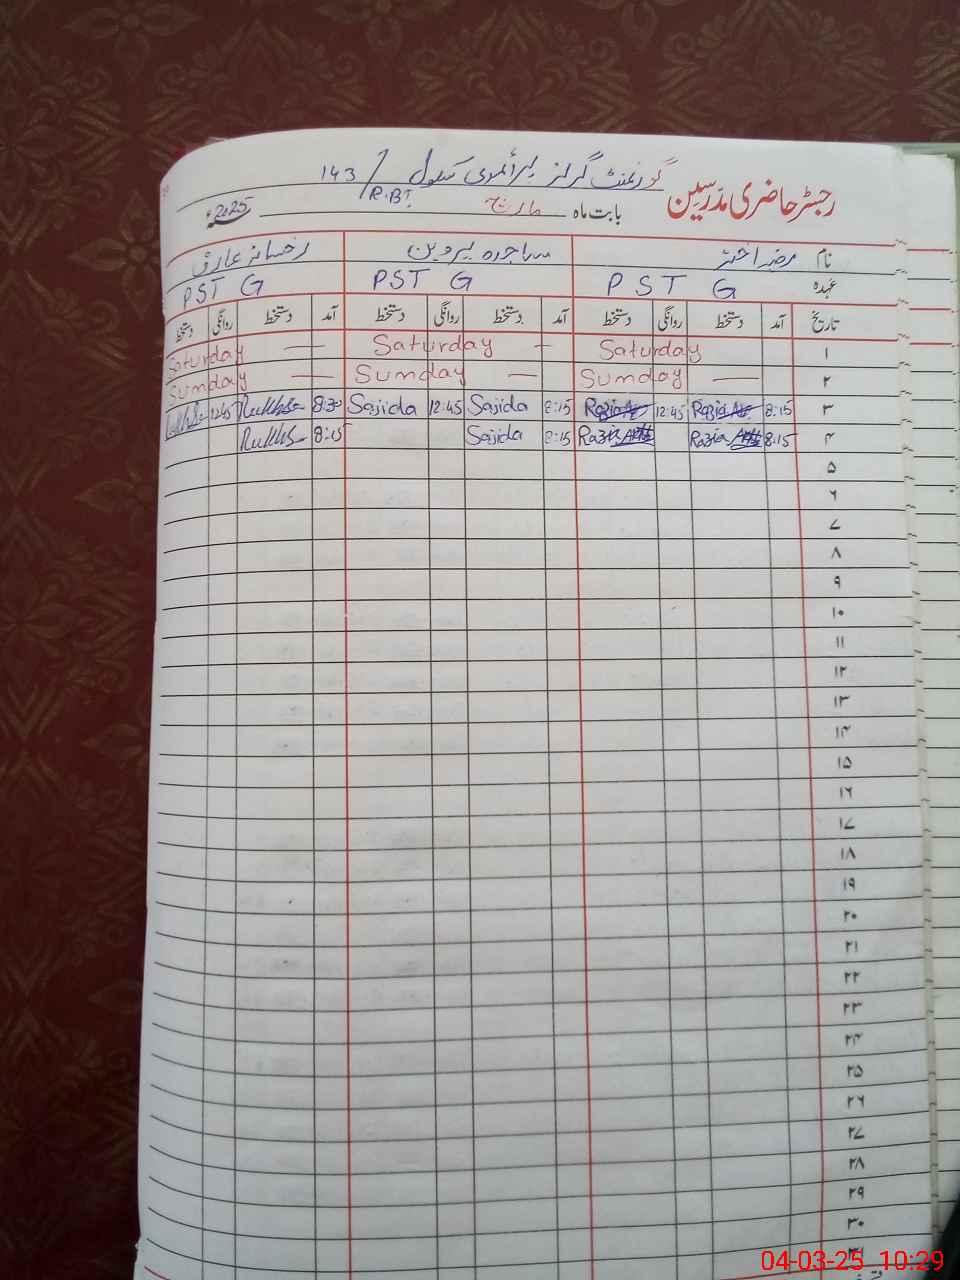 گورنمنٹ گرلز پرائمری سکول / 143 R.B
رجسٹر حاضری مدرسین بابت ماہ مارچ 2025ء
نام رضیہ اختر ساجدہ پروین رخسانہ عارف
عہدہ PST G PST G PST G
تاریخ آمد دستخط روانگی دستخط آمد دستخط روانگی دستخط آمد دستخط روانگی دستخط
۱ Saturday — Saturday — Saturday
۲ Sunday — Sunday — Sunday —
۳ 8:15 Razia 12:45 Razia 8:15 Sajida 12:45 Sajida 8:30 12:45
۴ 8:15 Razia Razia 8:15 Sajida 8:15
۵
۶
۷
۸
۹
۱۰
۱۱
۱۲
۱۳
۱۴
۱۵
۱۶
۱۷
۱۸
۱۹
۲۰
۲۱
۲۲
۲۳
۲۴
۲۵
۲۶
۲۷
۲۸
۲۹
۳۰
04-03-25 10:29